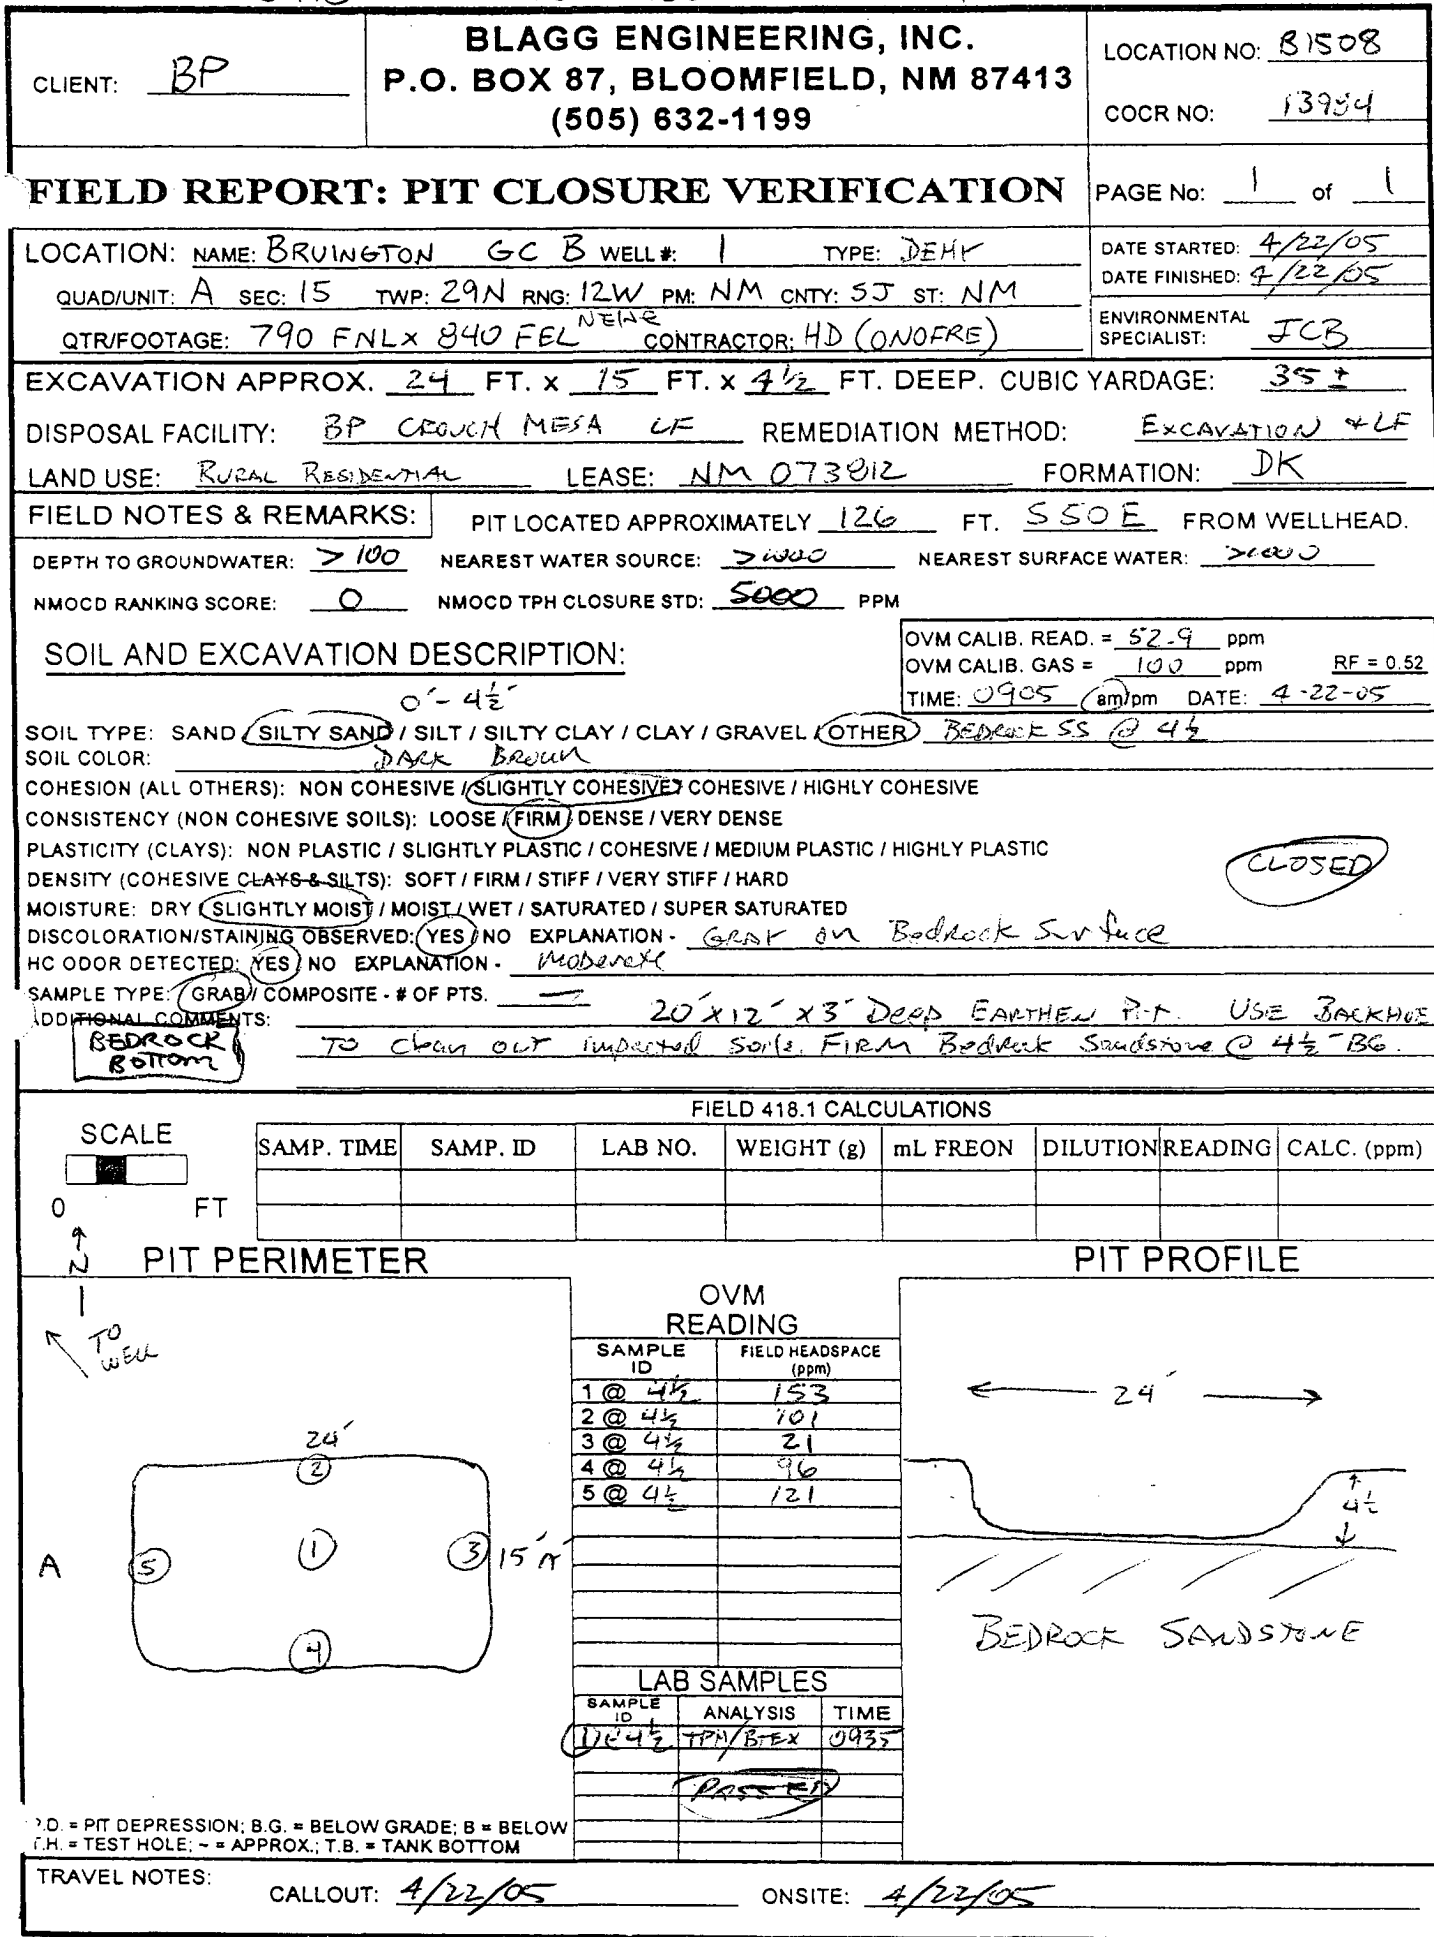 BLAGG ENGINEERING, INC.
P.O. BOX 87, BLOOMFIELD, NM 87413
(505) 632-1199
CLIENT: BP
LOCATION NO: B1508
COCR NO: 13984
FIELD REPORT: PIT CLOSURE VERIFICATION
PAGE No: 1 of 1
LOCATION: NAME: BRUINGTON GC B WELL #: 1 TYPE: DEHY
QUAD/UNIT: A SEC: 15 TWP: 29N RNG: 12W PM: NM CNTY: SJ ST: NM
QTR/FOOTAGE: 790 FNL x 840 FEL NE/NE CONTRACTOR: HD (ONOFRE)
DATE STARTED: 4/22/05
DATE FINISHED: 4/22/05
ENVIRONMENTAL SPECIALIST: JCB
EXCAVATION APPROX. 24 FT. x 15 FT. x 4½ FT. DEEP. CUBIC YARDAGE: 35 ±
DISPOSAL FACILITY: BP CROUCH MESA LF REMEDIATION METHOD: EXCAVATION + LF
LAND USE: RURAL RESIDENTIAL LEASE: NM 073812 FORMATION: DK
FIELD NOTES & REMARKS: PIT LOCATED APPROXIMATELY 126 FT. S50E FROM WELLHEAD.
DEPTH TO GROUNDWATER: >100 NEAREST WATER SOURCE: >1000 NEAREST SURFACE WATER: >1000
NMOCD RANKING SCORE: 0 NMOCD TPH CLOSURE STD: 5000 PPM
SOIL AND EXCAVATION DESCRIPTION:
OVM CALIB. READ. = 52.9 ppm
OVM CALIB. GAS = 100 ppm RF = 0.52
TIME: 0905 am/pm DATE: 4-22-05
0'- 4½'
SOIL TYPE: SAND / SILTY SAND / SILT / SILTY CLAY / CLAY / GRAVEL / OTHER BEDROCK SS @ 4½
SOIL COLOR: DARK BROWN
COHESION (ALL OTHERS): NON COHESIVE / SLIGHTLY COHESIVE / COHESIVE / HIGHLY COHESIVE
CONSISTENCY (NON COHESIVE SOILS): LOOSE / FIRM / DENSE / VERY DENSE
PLASTICITY (CLAYS): NON PLASTIC / SLIGHTLY PLASTIC / COHESIVE / MEDIUM PLASTIC / HIGHLY PLASTIC
DENSITY (COHESIVE CLAYS & SILTS): SOFT / FIRM / STIFF / VERY STIFF / HARD
CLOSED
MOISTURE: DRY / SLIGHTLY MOIST / MOIST / WET / SATURATED / SUPER SATURATED
DISCOLORATION/STAINING OBSERVED: YES / NO EXPLANATION - GRAY on Bedrock Surface
HC ODOR DETECTED: YES / NO EXPLANATION - Moderate
SAMPLE TYPE: GRAB / COMPOSITE - # OF PTS. —
ADDITIONAL COMMENTS: 20'x12'x3' Deep EARTHEN Pit. USE BACKHOE
BEDROCK BOTTOM
TO Clean out impacted soils. FIRM Bedrock Sandstone @ 4½' BG.
FIELD 418.1 CALCULATIONS
SCALE
0 FT
SAMP. TIME SAMP. ID LAB NO. WEIGHT (g) mL FREON DILUTION READING CALC. (ppm)
N
PIT PERIMETER
TO WELL
24'
2
5
1
3
15'
4
A
OVM READING
SAMPLE ID FIELD HEADSPACE (ppm)
1 @ 4½ 153
2 @ 4½ 101
3 @ 4½ 21
4 @ 4½ 96
5 @ 4½ 121
LAB SAMPLES
SAMPLE ID ANALYSIS TIME
1@4½ TPH/BTEX 0935
PASSED
PIT PROFILE
24'
4½
BEDROCK SANDSTONE
P.D. = PIT DEPRESSION; B.G. = BELOW GRADE; B = BELOW
T.H. = TEST HOLE; ~ = APPROX.; T.B. = TANK BOTTOM
TRAVEL NOTES: CALLOUT: 4/22/05 ONSITE: 4/22/05